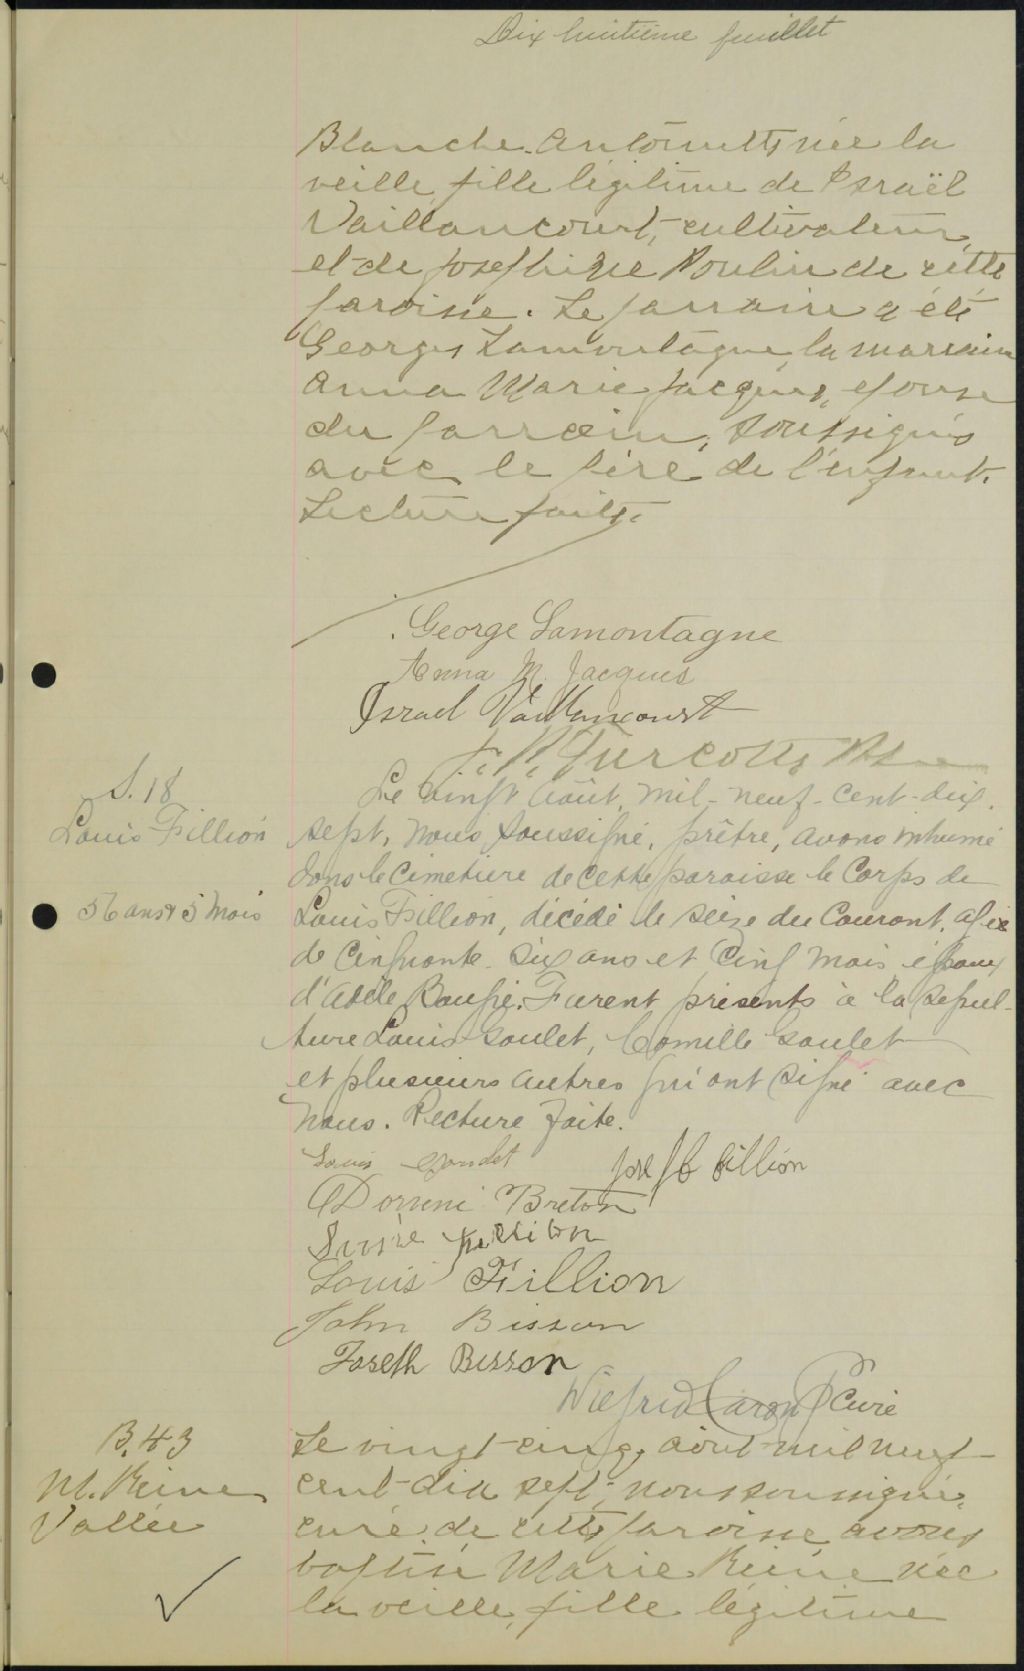 Dix huitième feuillet
Blanche Antoinette née la
veille, fille légitime de Israël
Vaillancourt, cultivateur,
et de Josephine Poulin de cette
paroisse. Le parrain a été
Georges Lamontagne, la marraine
Anna Marie Jacques, epouse
du parrain, soussignés
avec le père de l'enfant.
Lecture faite.
George Lamontagne
Anna M. Jacques
Israel Vaillancourt
J. P. Turcotte Ptre
S. 18
Louis Fillion
56 ans & 5 mois
Le vingt Août, mil-neuf-cent-dix.
sept, nous soussigné, prêtre, avons inhumé
dans le Cimetière de cette paroisse le Corps de
Louis Fillion, décédé le seize du Courant, agée
de Cinquante Six ans et Cinq mois époux
d'Adèle Goupie. Furent présents à la sepul-
ture Louis Goulet, Camille Goulet
et plusieurs autres qui ont signé avec
nous. Lecture faite.
Louis Goulet
Joseph Fillion
Breton
Fillion
Louis Fillion
John Bisson
Joseph Bisson
Wilfrid Caron Ptre Curé
B. 43
M. Reine
Vallée
Le vingt-cinq, août mil neuf-
cent-dix sept, nous soussigné,
curé de cette paroisse avons
baptisé Marie Reine née
la veille, fille légitime